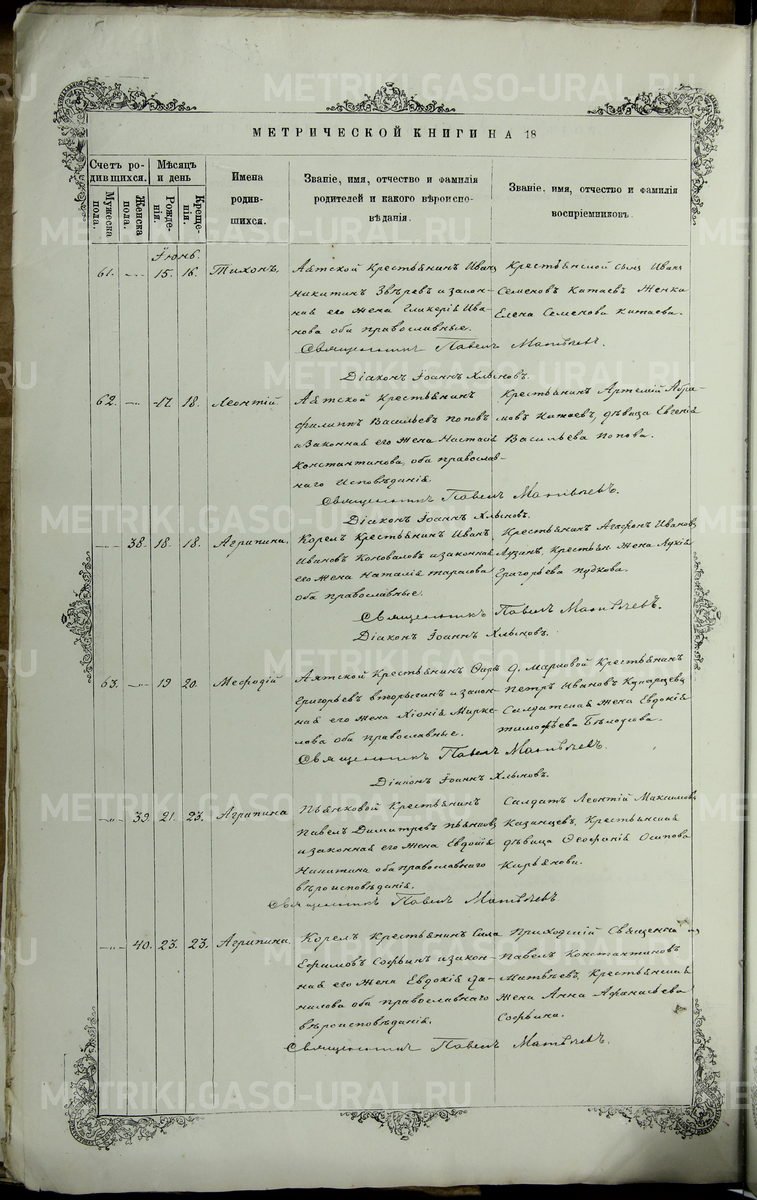 МЕТРИЧЕСКОЙ КНИГИ НА 18
Счетъ родившихся.
Мужеска пола.
Женска пола.
Мѣсяцъ и день
Рожденія.
Крещенія.
Имена родившихся.
Званіе, имя, отчество и фамилія родителей и какого вѣроисповѣданія.
Званіе, имя, отчество и фамилія воспріемниковъ.
Іюнь.
61. 15. 16. Тихонъ,
Аятской Крестьянинъ Иванъ
Никитинъ Звѣревъ и закон-
ная его жена Гликерія Ива-
нова оба православные.
Крестьянской сынъ Иванъ
Семеновъ Китаевъ Женка
Елена Семенова Китаева.
Священникъ Павелъ Матвѣевъ.
Діаконъ Іоаннъ Хлыновъ.
62. 17. 18. Леонтій.
Аятской Крестьянинъ
Филиппъ Васильевъ Поповъ
и Законная его жена Настасія
Константинова, оба православ-
наго Исповѣданія.
Крестьянинъ Артемій Абра-
мовъ Китаевъ, дѣвица Евгенія
Васильева Попова.
Священникъ Павелъ Матвѣевъ.
Діаконъ Іоаннъ Хлыновъ.
38. 18. 18. Агрипина.
Корелъ Крестьянинъ Иванъ
Ивановъ Коноваловъ и законная
его жена Наталія
оба православные.
Крестьянинъ Агафонъ Ивановъ
Крестьян. Жена
Григорьева
Священникъ Павелъ Матвѣевъ.
Діаконъ Іоаннъ Хлыновъ.
63. 19 20. Меѳодій
Аятской Крестьянинъ
Григорьевъ Вторыгинъ и закон-
ная его жена Хіонія Мирке-
лова оба православные.
д. Марковой Крестьянинъ
Петръ Ивановъ
Салдатская жена Евдокія
Тимофѣева
Священникъ Павелъ Матвѣевъ.
Діаконъ Іоаннъ Хлыновъ.
39. 21. 23. Агрипина
Пьянковой Крестьянинъ
Павелъ Димитревъ Пьянковъ
и законная его жена Евдокія
Никитина оба православнаго
вѣроисповѣданія.
Салдатъ Леонтій Максимовъ
Казанцевъ, Крестьянская
дѣвица Ѳеофанія Осипова
Кирьянова.
Священникъ Павелъ Матвѣевъ
40. 23. 23. Агрипина.
Корелъ Крестьянинъ Сила
Ефимовъ Софьинъ и закон-
ная его жена Евдокія Да-
нилова оба православнаго
вѣроисповѣданія.
Приходскій Священникъ
Павелъ Константиновъ
Матвѣевъ, Крестьянская
жена Анна Афанасьева
Софьина.
Священникъ Павелъ Матвѣевъ.
METRIKI.GASO-URAL.RU